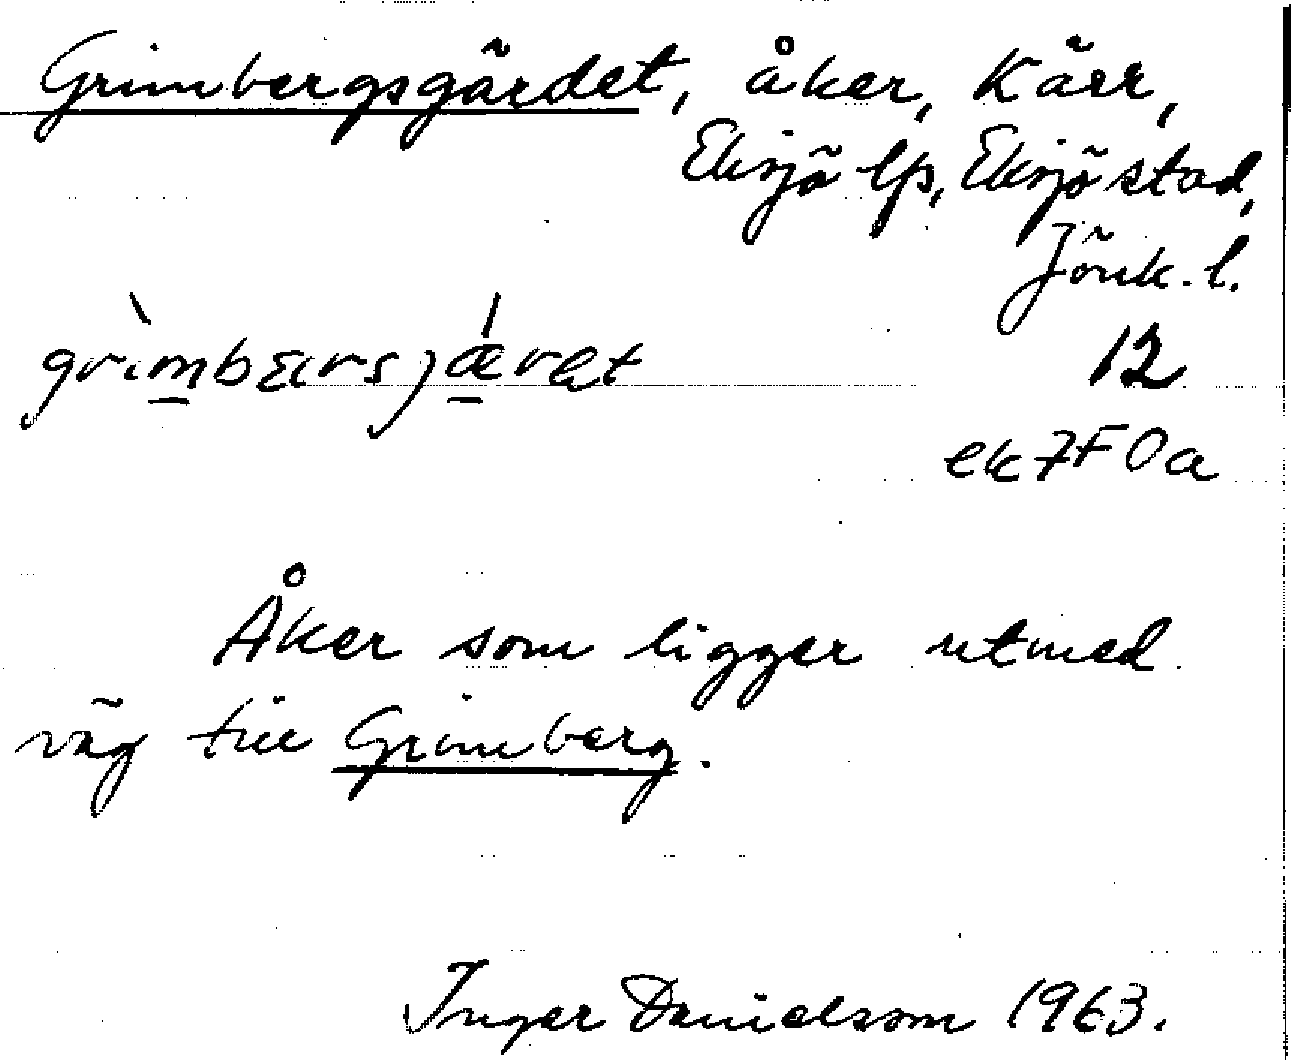 Grimbergsgärdet, åker, Kärr,
Eksjö lfs, Eksjö stad,
Jönk. l.
12
ek 7F 0a
Åker som ligger utmed
väg till Grimberg.
Inger Danielsson 1963.